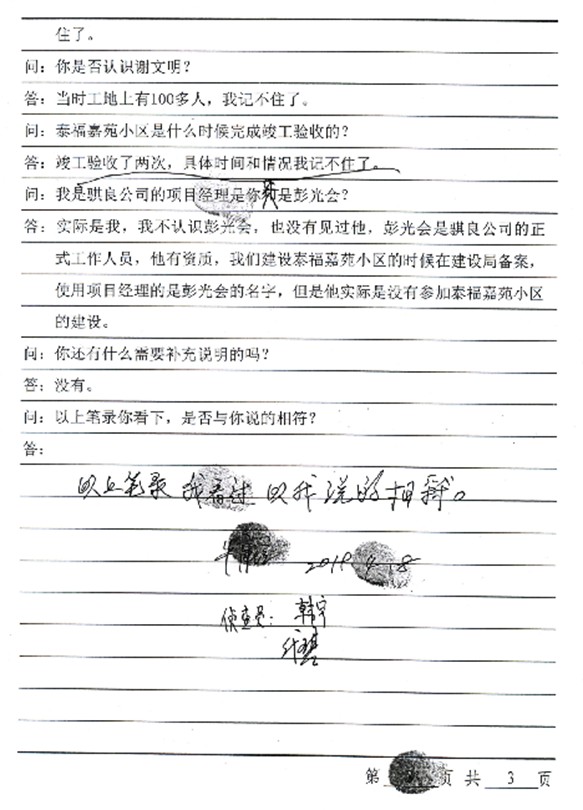 住了。
问：你是否认识谢文明？
答：当时工地上有100多人，我记不住了。
问：泰福嘉苑小区是什么时候完成竣工验收的？
答：竣工验收了两次，具体时间和情况我记不住了。
问：我是骐良公司的项目经理是你还是彭光会？
答：实际是我，我不认识彭光会，也没有见过他，彭光会是骐良公司的正
式工作人员，他有资质，我们建设泰福嘉苑小区的时候在建设局备案，
使用项目经理的是彭光会的名字，但是他实际是没有参加泰福嘉苑小区
的建设。
问：你还有什么需要补充说明的吗？
答：没有。
问：以上笔录你看下，是否与你说的相符？
答：
以上笔录我看过 以我说的相符。
2019 4.18
侦查员：韩宇
第 页 共 3 页